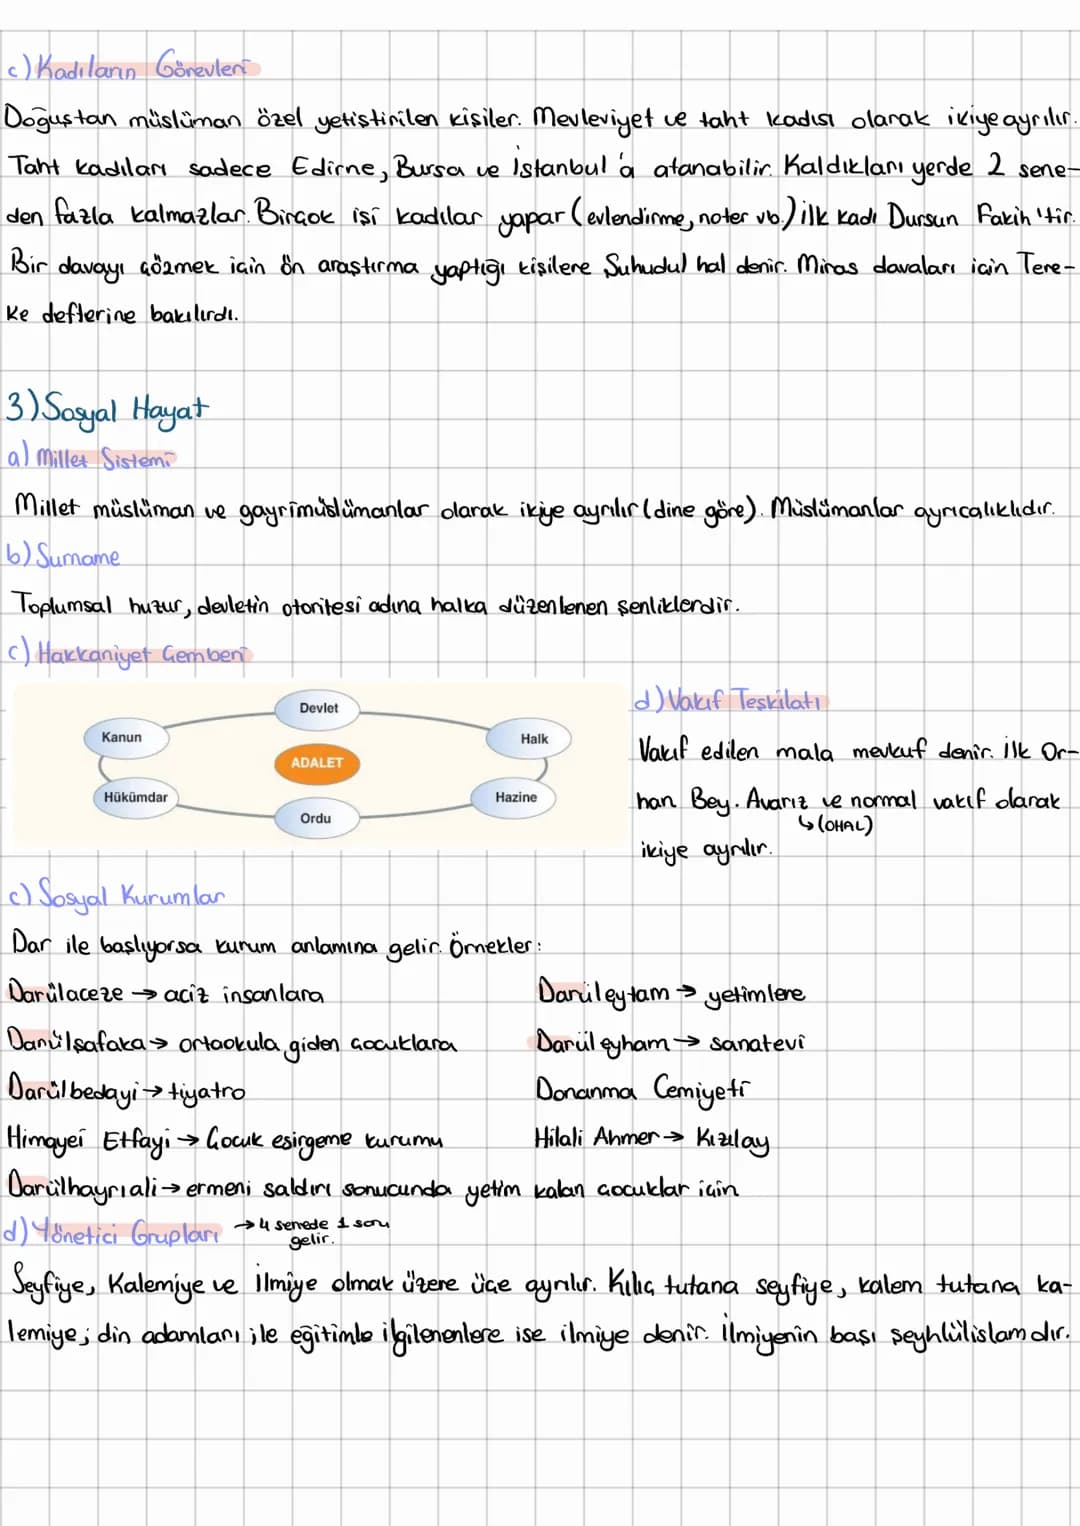 c) Kadıların Görevleri
Doğuştan müslüman özel yetiştirilen kişiler. Mevleviyet ve taht kadısı olarak ikiye ayrılır.
Taht kadıları sadece Edirne, Bursa ve İstanbul'a atanabilir. Kaldıkları yerde 2 sene-
den fazla kalmazlar. Birçok işi kadılar yapar (evlendirme, noter vb.) ilk kadı Dursun Fakih'tir.
Bir davayı çözmek için ön araştırma yaptığı kişilere Şuhudul hal denir. Miras davaları için Tere-
ke defterine bakılırdı.
3) Sosyal Hayat
a) Millet Sistemi
Millet müslüman ve gayrimüslümanlar olarak ikiye ayrılır (dine göre). Müslümanlar ayrıcalıklıdır.
b) Surname
Toplumsal huzur, devletin otoritesi adına halka düzenlenen şenliklerdir.
c) Hakkaniyet Çemberi
Devlet
Kanun
Halk
ADALET
Hükümdar
Hazine
Ordu
d) Vakıf Teşkilatı
Vakıf edilen mala mevkuf denir. İlk Or-
han Bey. Avarız ve normal vakıf olarak
↳ (OHAL)
ikiye ayrılır.
c) Sosyal Kurumlar
Dar ile başlıyorsa kurum anlamına gelir. Örnekler:
Darülaceze → aciz insanlara
Darüleytam → yetimlere
Darülşafaka → ortaokula giden çocuklara
Darüleyham → sanatevi
Darülbedayi → tiyatro
Donanma Cemiyeti
Himayei Etfayi → Çocuk esirgeme kurumu
Hilali Ahmer → Kızılay
Darülhayrıali → ermeni saldırı sonucunda yetim kalan çocuklar için
d) Yönetici Grupları → 4 senede 1 soru
gelir.
Seyfiye, Kalemiye ve ilmiye olmak üzere üçe ayrılır. Kılıç tutana seyfiye, kalem tutana ka-
lemiye; din adamları ile eğitimle ilgilenenlere ise ilmiye denir. İlmiyenin başı şeyhlülislamdır.